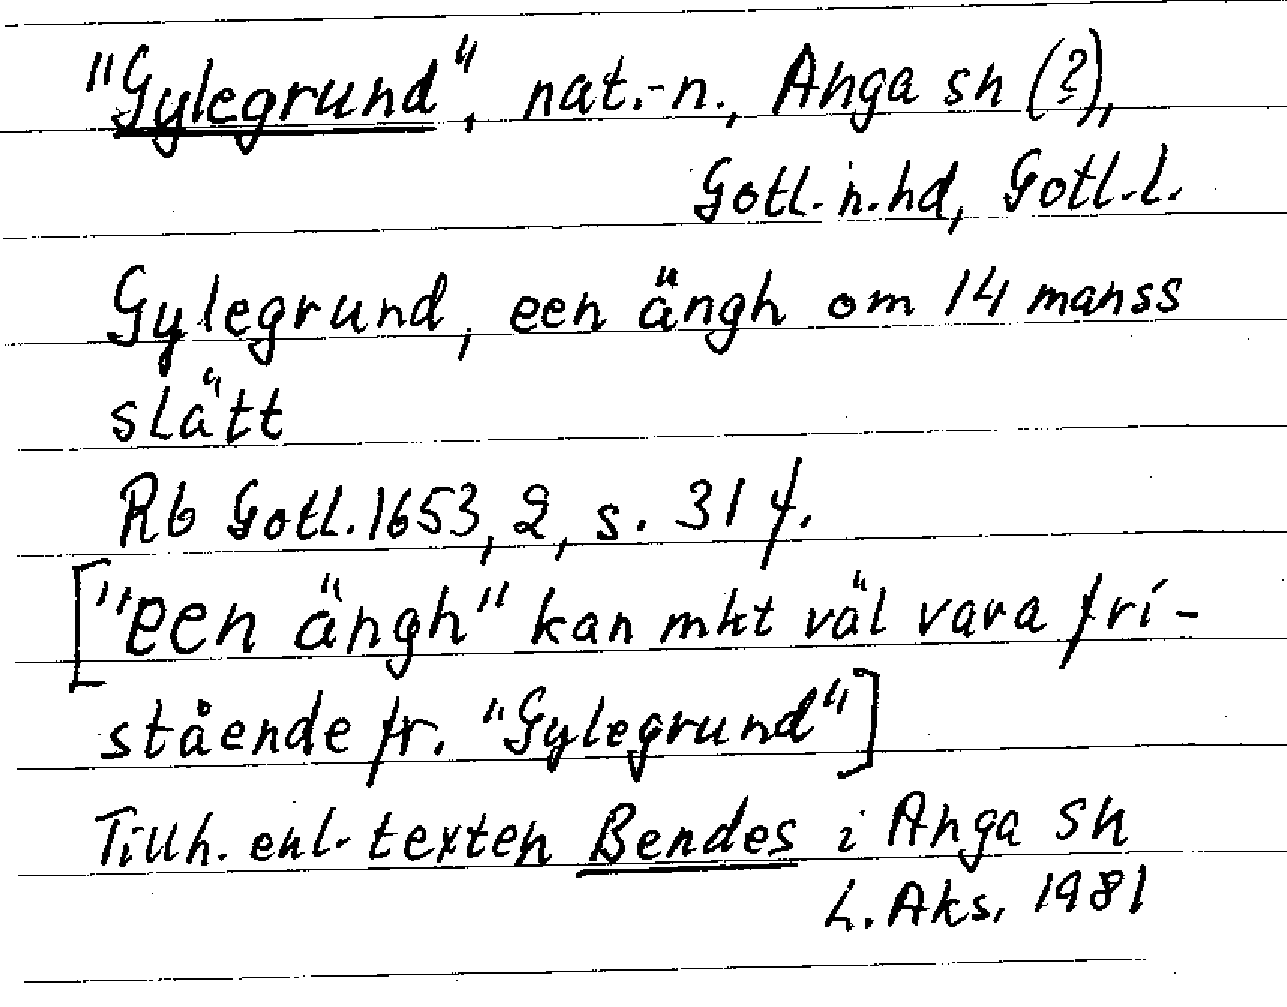 "Gylegrund", nat.-n., Anga sn (?),
Gotl. n. hd, Gotl. l.
Gylegrund, een ängh om 14 manss
slätt
Rb Gotl. 1653, 2, s. 31 f.
["een ängh" kan mkt väl vara fri-
stående fr. "Gylegrund"]
Tillh. enl. texten Bendes i Anga sn
L. Aks. 1981